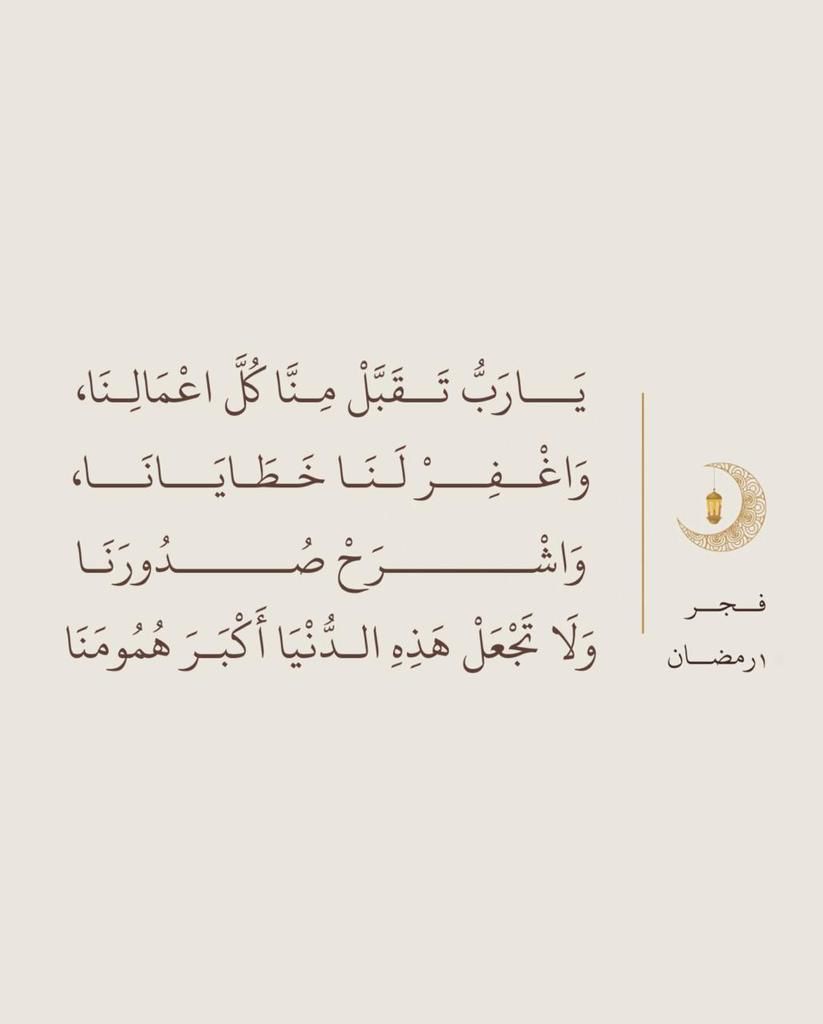 يَـــارَبُّ تَـــقَبَّلْ مِـنَّا كُلَّ اعْمَالِـنَا،
وَاغْـــفِـــرْ لَـنَـا خَـطَـايَـــانَـــا،
وَاشْـــــــرَحْ صُـــــدُورَنَـا
وَلَا تَجْعَلْ هَذِهِ الـدُّنْيَا أَكْبَـرَ هُمُومَنَا
فـجـر
١رمضـان